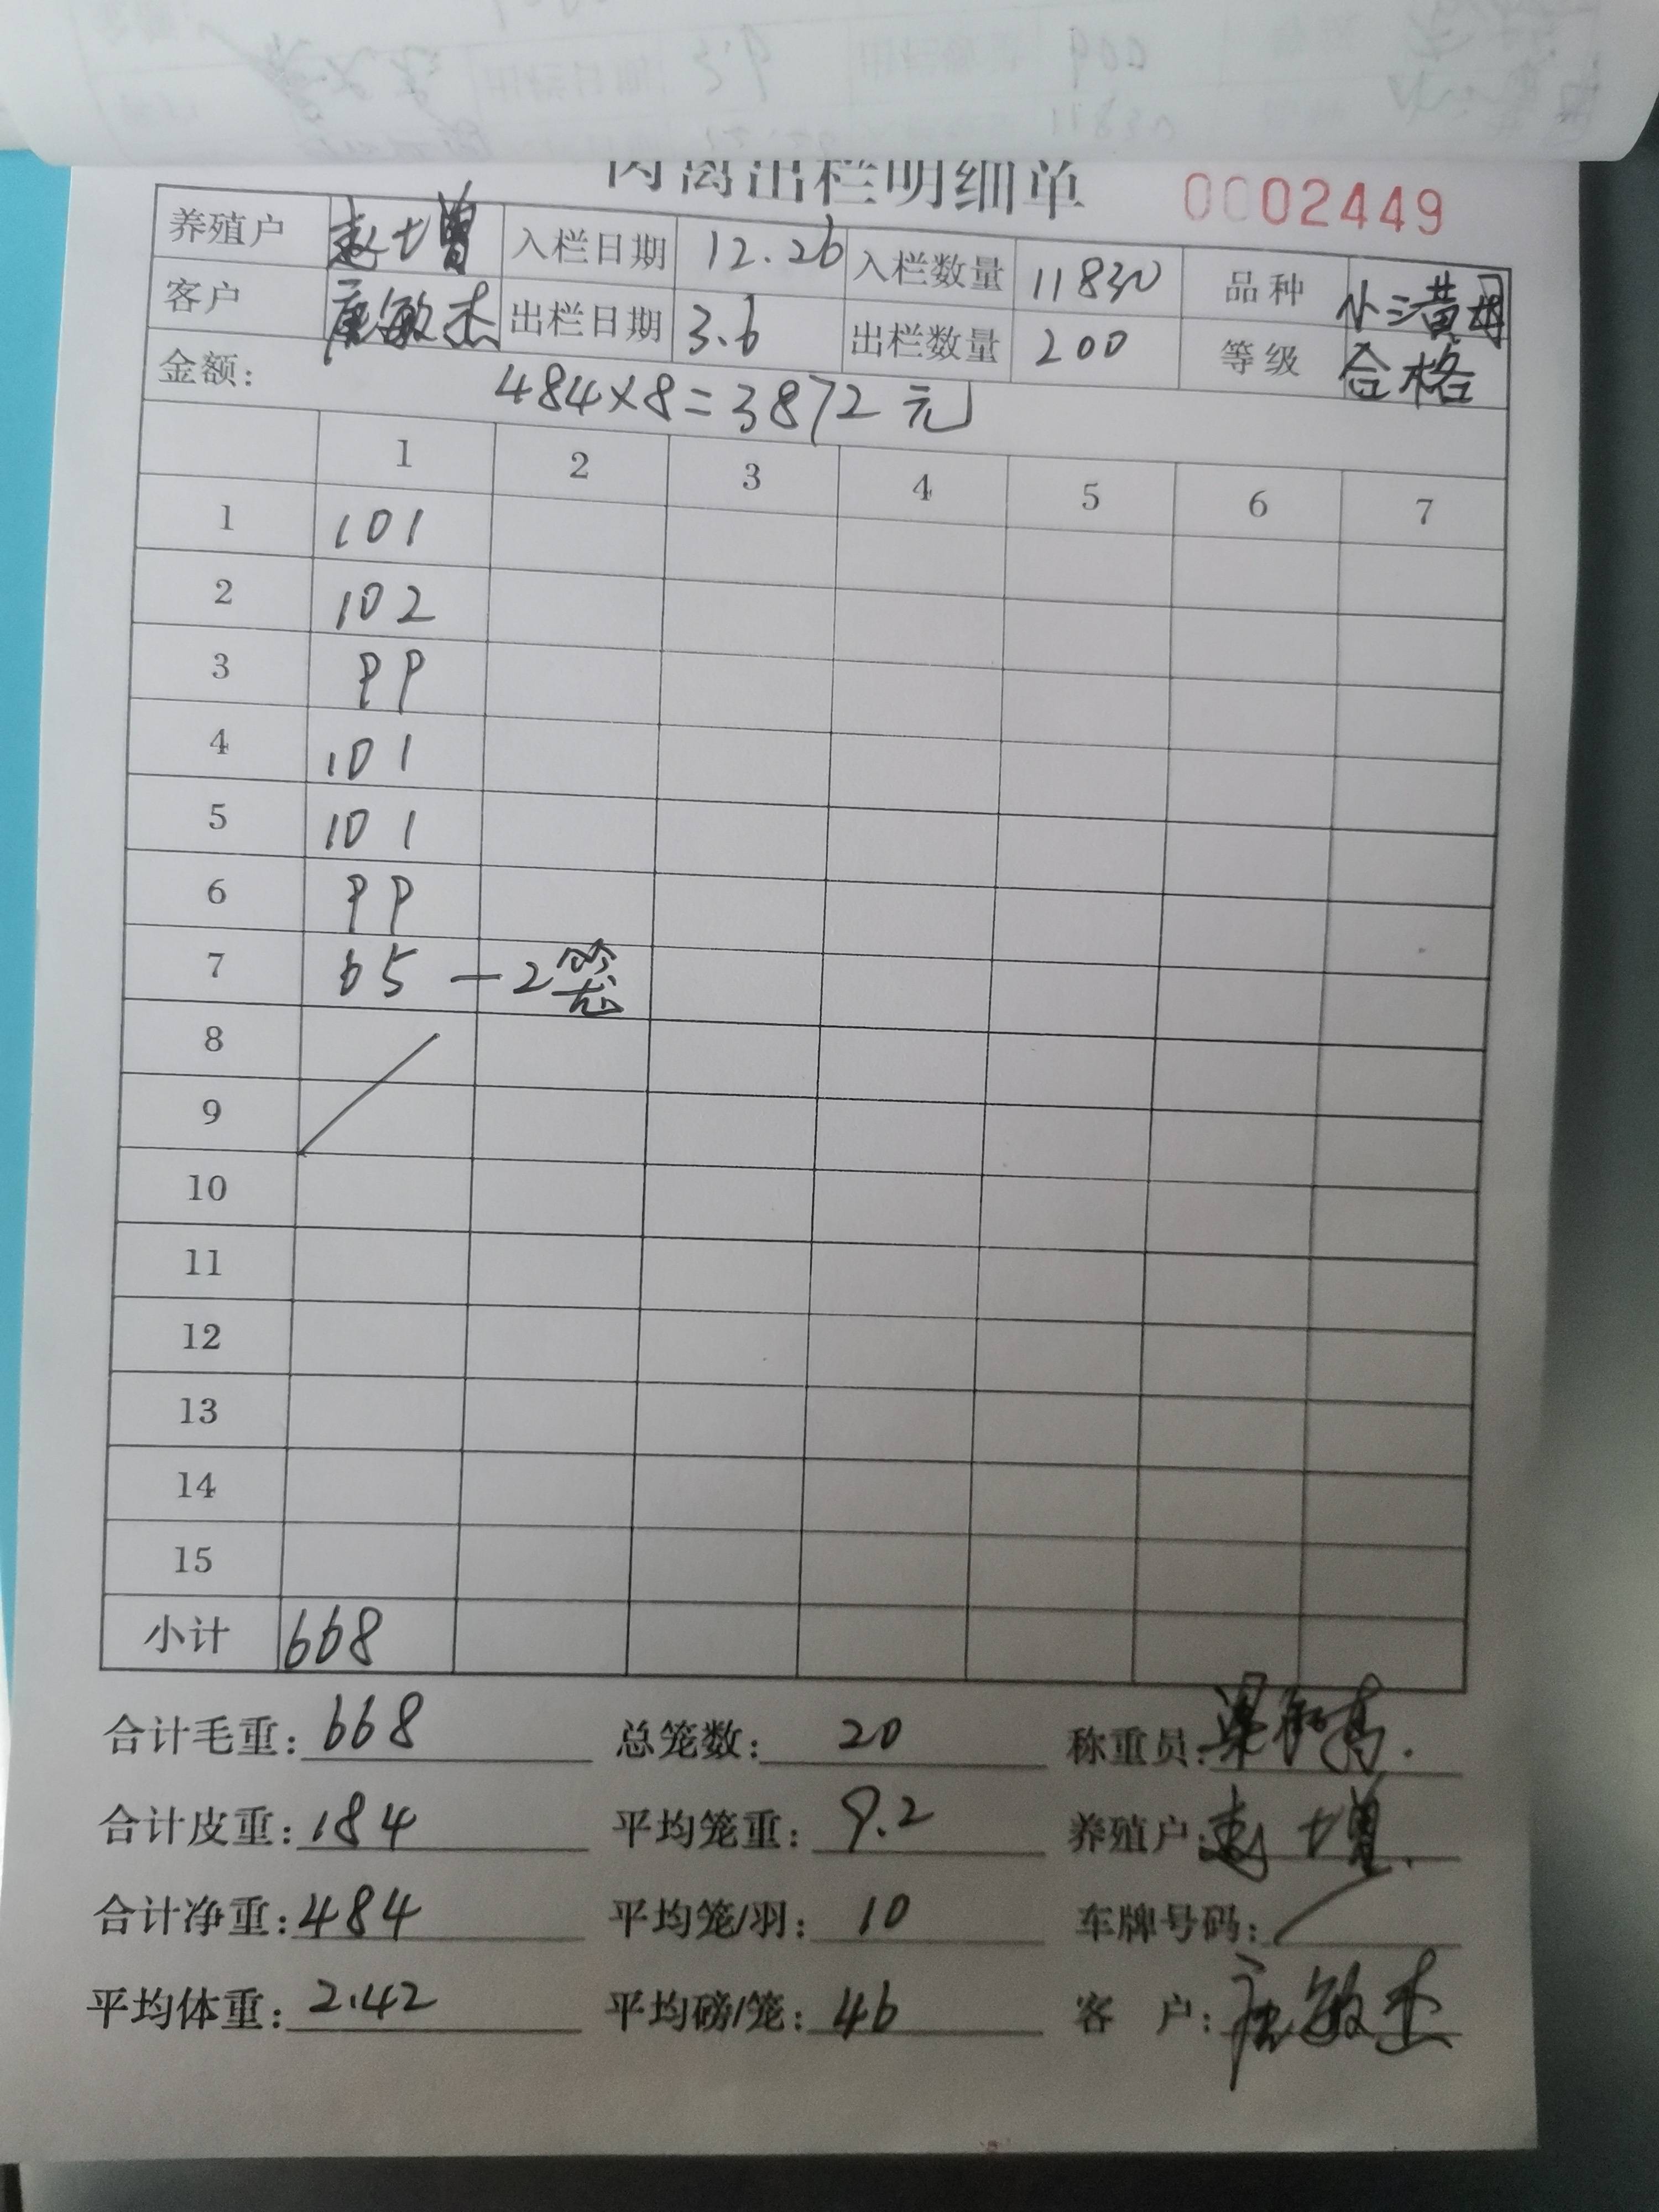 肉禽出栏明细单 0002449
养殖户 赵士增 入栏日期 12.26 入栏数量 11830 品种
客户 唐敏杰 出栏日期 3.6 出栏数量 200 等级 合格
金额: 484×8=3872元
1 2 3 4 5 6 7
1 101
2 102
3 99
4 101
5 101
6 99
7 65 —2笼
8
9
10
11
12
13
14
15
小计 668
合计毛重: 668 总笼数: 20 称重员:
合计皮重: 184 平均笼重: 9.2 养殖户: 赵士增
合计净重: 484 平均笼/羽: 10 车牌号码:
平均体重: 2.42 平均磅/笼: 46 客 户: 唐敏杰